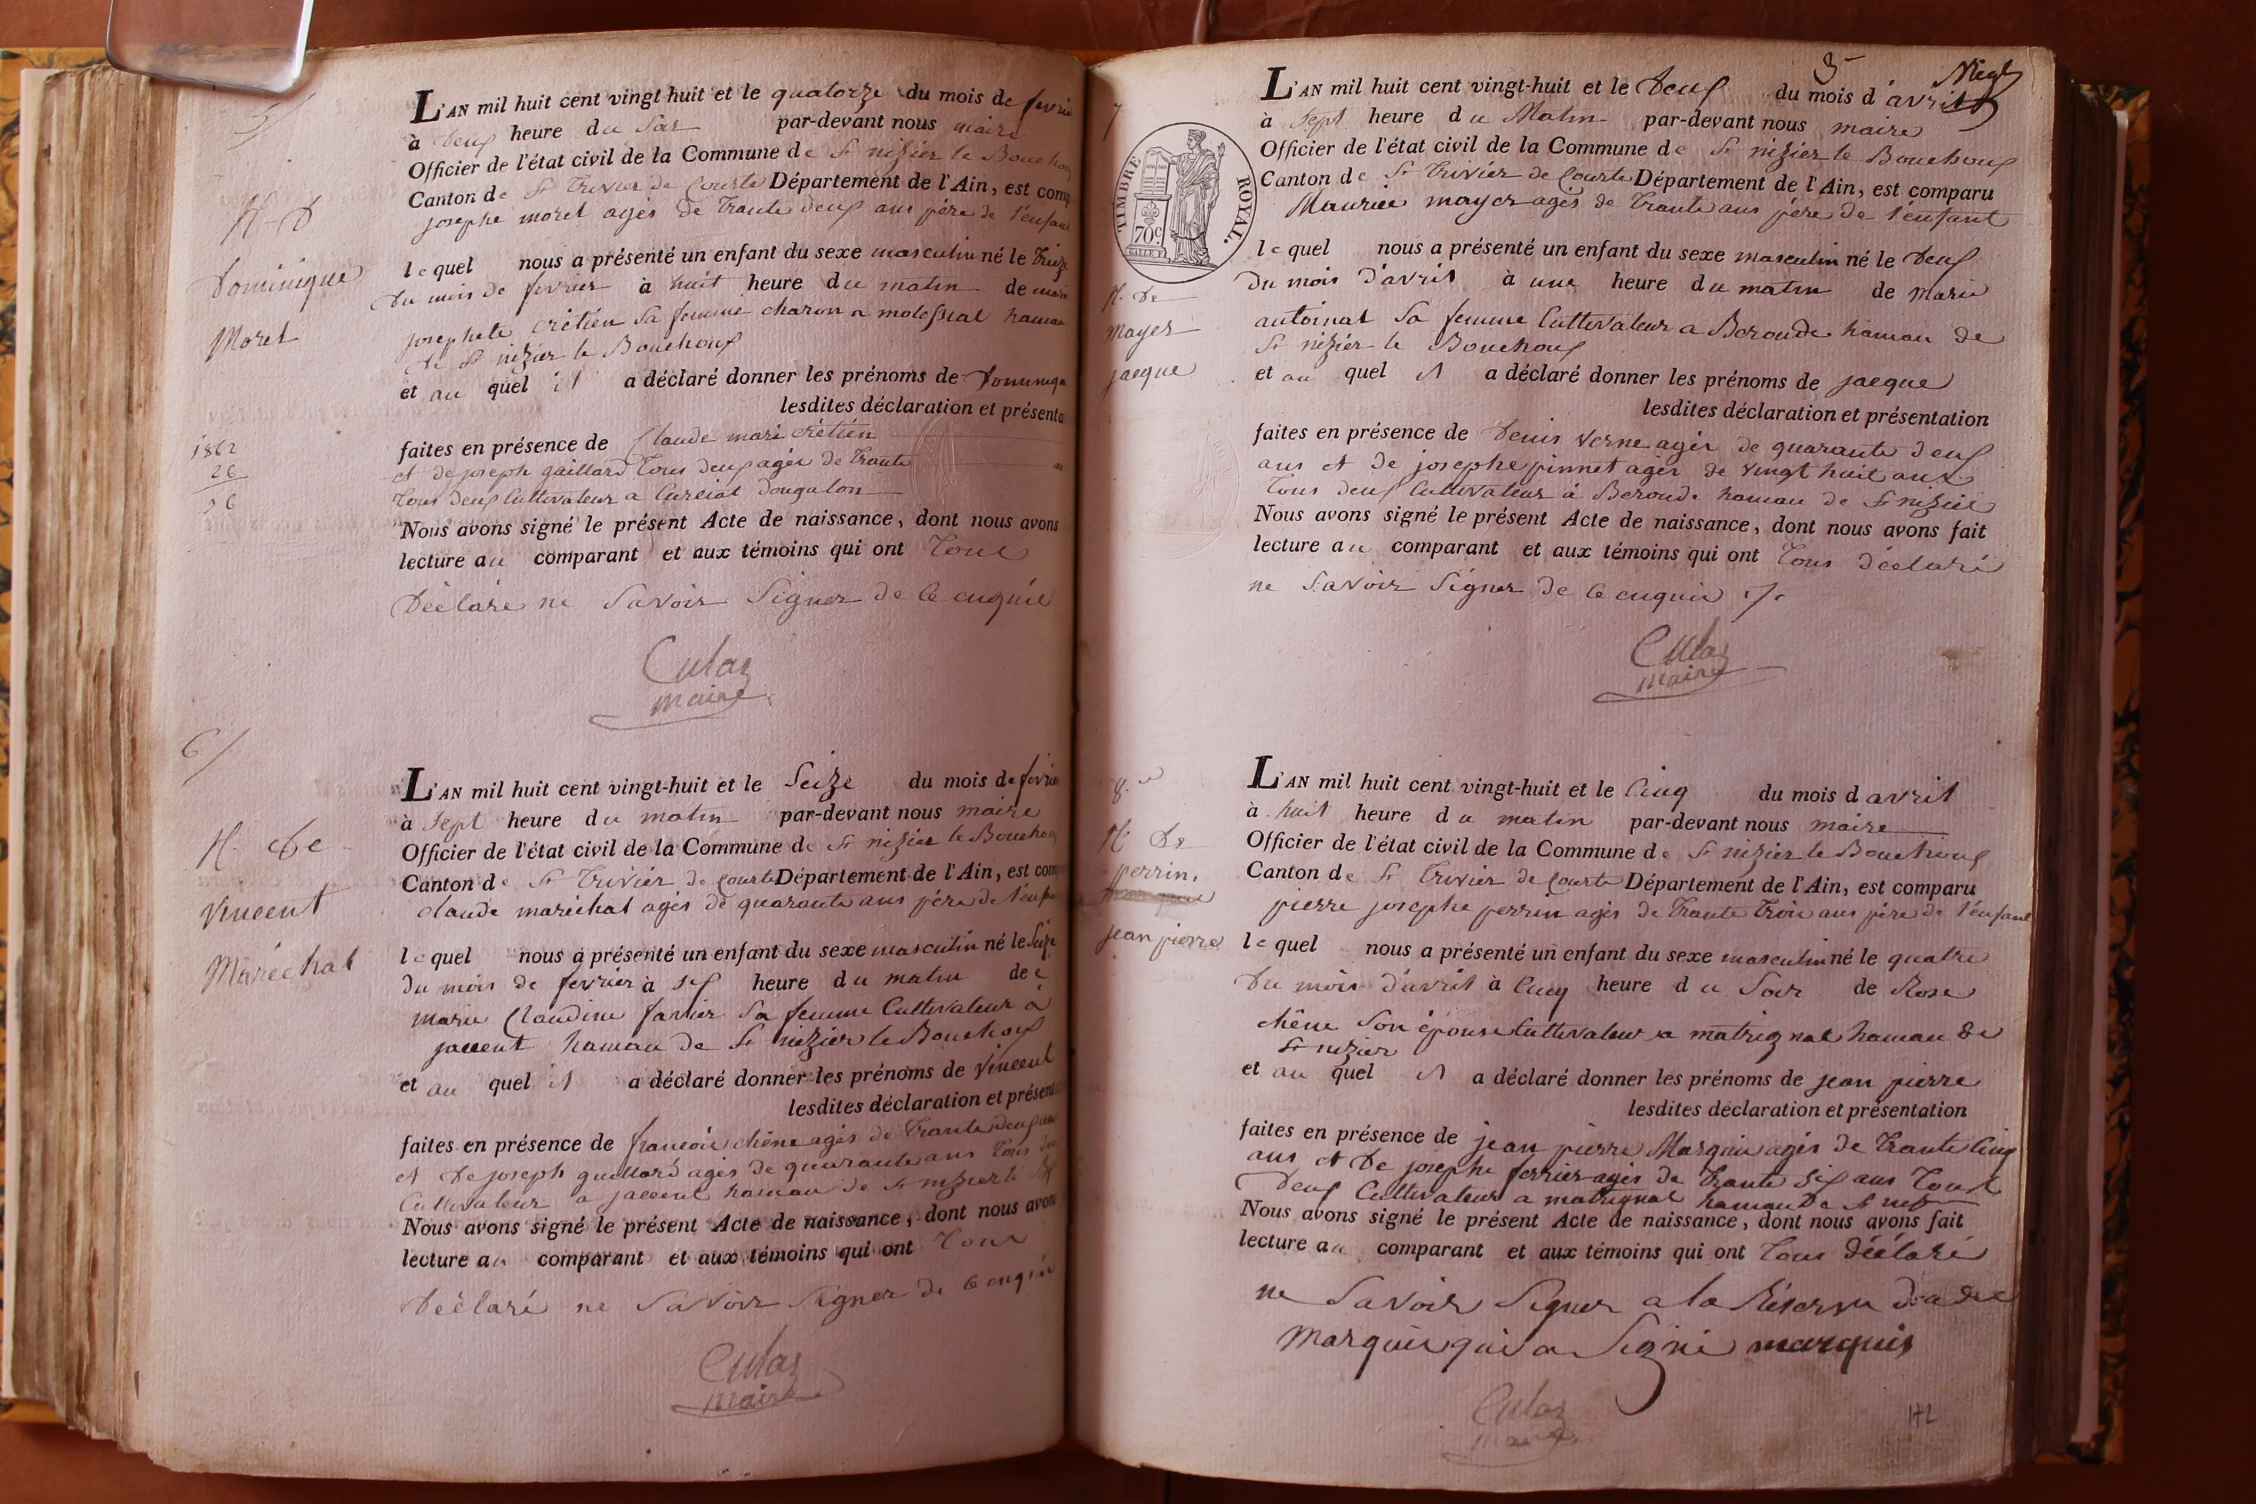 5/
L'AN mil huit cent vingt huit et le quatorze du mois de fevrie
à deux heure du Soir par-devant nous maire
Officier de l'état civil de la Commune de St nizier le Bouchou
Canton de St Trivier de Courte Département de l'Ain, est comp
josephe morel agés de trante deux ans pére de l'enfant
N. D
Dominique
Morel
le quel nous a présenté un enfant du sexe masculin né le Treize
du mois de fevrier à huit heure du matin de marie
josephete crétien Sa femme charon a molessiat hamau
de St nizier le Bouchoux
et au quel il a déclaré donner les prénoms de Dominique
lesdites déclaration et présenta
1862
26
36
faites en présence de Claude marie crétien
et de joseph gaillard Tous deux agés de trante
Tous deux Cultivateur a Curciat dongalon
Nous avons signé le présent Acte de naissance, dont nous avons
lecture au comparant et aux témoins qui ont Tous
Déclaré ne Savoir Signer de ce enquie
Culaz
maire
6/
L'AN mil huit cent vingt-huit et le Seize du mois de fevrier
à Sept heure du matin par-devant nous maire
Officier de l'état civil de la Commune de St nizier le Bouchou
Canton de St Trivier de Courte Département de l'Ain, est com
Claude maréchal agés de quarante ans pére de l'enfan
N. de
Vincent
Maréchal
le quel nous a présenté un enfant du sexe masculin né le Seize
du mois de fevrier à Six heure du matin de
marie Claudine farvier Sa femme Cultivateur à
jaccent hamau de St nizier le Bouchoux
et au quel il a déclaré donner les prénoms de Vincent
lesdites déclaration et présen
faites en présence de francois chêne agés de trante deux ans
et De joseph guillard agés de quarante ans Tous deux
Cultivateur a jaccent hamau de St nizier le
Nous avons signé le présent Acte de naissance, dont nous avons
lecture au comparant et aux témoins qui ont Tous
Déclaré ne Savoir Signer de ce enquie
Culaz
maire
3
7
L'AN mil huit cent vingt-huit et le Deux du mois d'avril
à Sept heure du Matin par-devant nous maire
Officier de l'état civil de la Commune de St nizier le Bouchoux
Canton de St Trivier de Courte Département de l'Ain, est comparu
Maurice mayer agés de trante ans pére de l'enfant
TIMBRE ROYAL.
70c
N. De
Mayer
jacque
le quel nous a présenté un enfant du sexe masculin né le Deux
du mois d'avril à une heure du matin de Marie
antoinat Sa femme Cultivateur a Beroude hamau de
St nizier le Bouchoux
et au quel il a déclaré donner les prénoms de jacque
lesdites déclaration et présentation
faites en présence de Denis Verne agés de quarante deux
ans et de josephe pinnet agés de vingt huit ans
Tous deux Cultivateur à Beroude hamau de St nizier
Nous avons signé le présent Acte de naissance, dont nous avons fait
lecture au comparant et aux témoins qui ont Tous déclaré
ne Savoir Signer de ce enquie
Culaz
maire
8
L'AN mil huit cent vingt-huit et le Cinq du mois d avril
à huit heure du matin par-devant nous maire
Officier de l'état civil de la Commune de St nizier le Bouchoux
Canton de St Trivier de Courte Département de l'Ain, est comparu
pierre josephe perrin agés de trante Trois ans pére de l'enfant
N De
perrin
jean pierre
le quel nous a présenté un enfant du sexe masculin né le quatre
Du mois d'avril à Cinq heure du Soir de Rose
chêne Son épouse Cultivateur a matrignat hamau de
St nizier
et au quel il a déclaré donner les prénoms de jean pierre
lesdites déclaration et présentation
faites en présence de jean pierre Marquis agés de trante Cinq
ans et De josephe ferrier agés de trante Six ans Tous
Deux Cultivateur a matrignat hamau De St
Nous avons signé le présent Acte de naissance, dont nous avons fait
lecture au comparant et aux témoins qui ont Tous déclaré
ne Savoir Signer a la Réserve
Marquis qui a Signé marquis
Culaz
maire
172